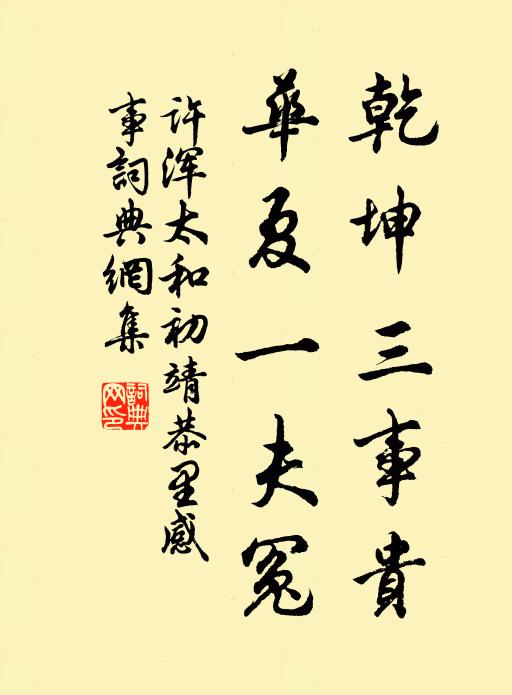 乾坤三事貴
華夏一夫冤
许浑太和初靖恭里感
事詞典網集
詞典
网印